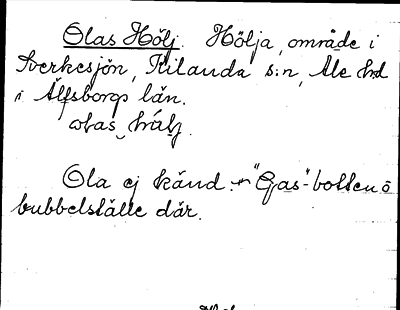 Olas Hölj. Hölja, område i
Sverkesjön, Kilanda s:n, Ale hd
i Älfsborgs län.
Ola ej känd. "Gas"-botten o
bubbelställe där.